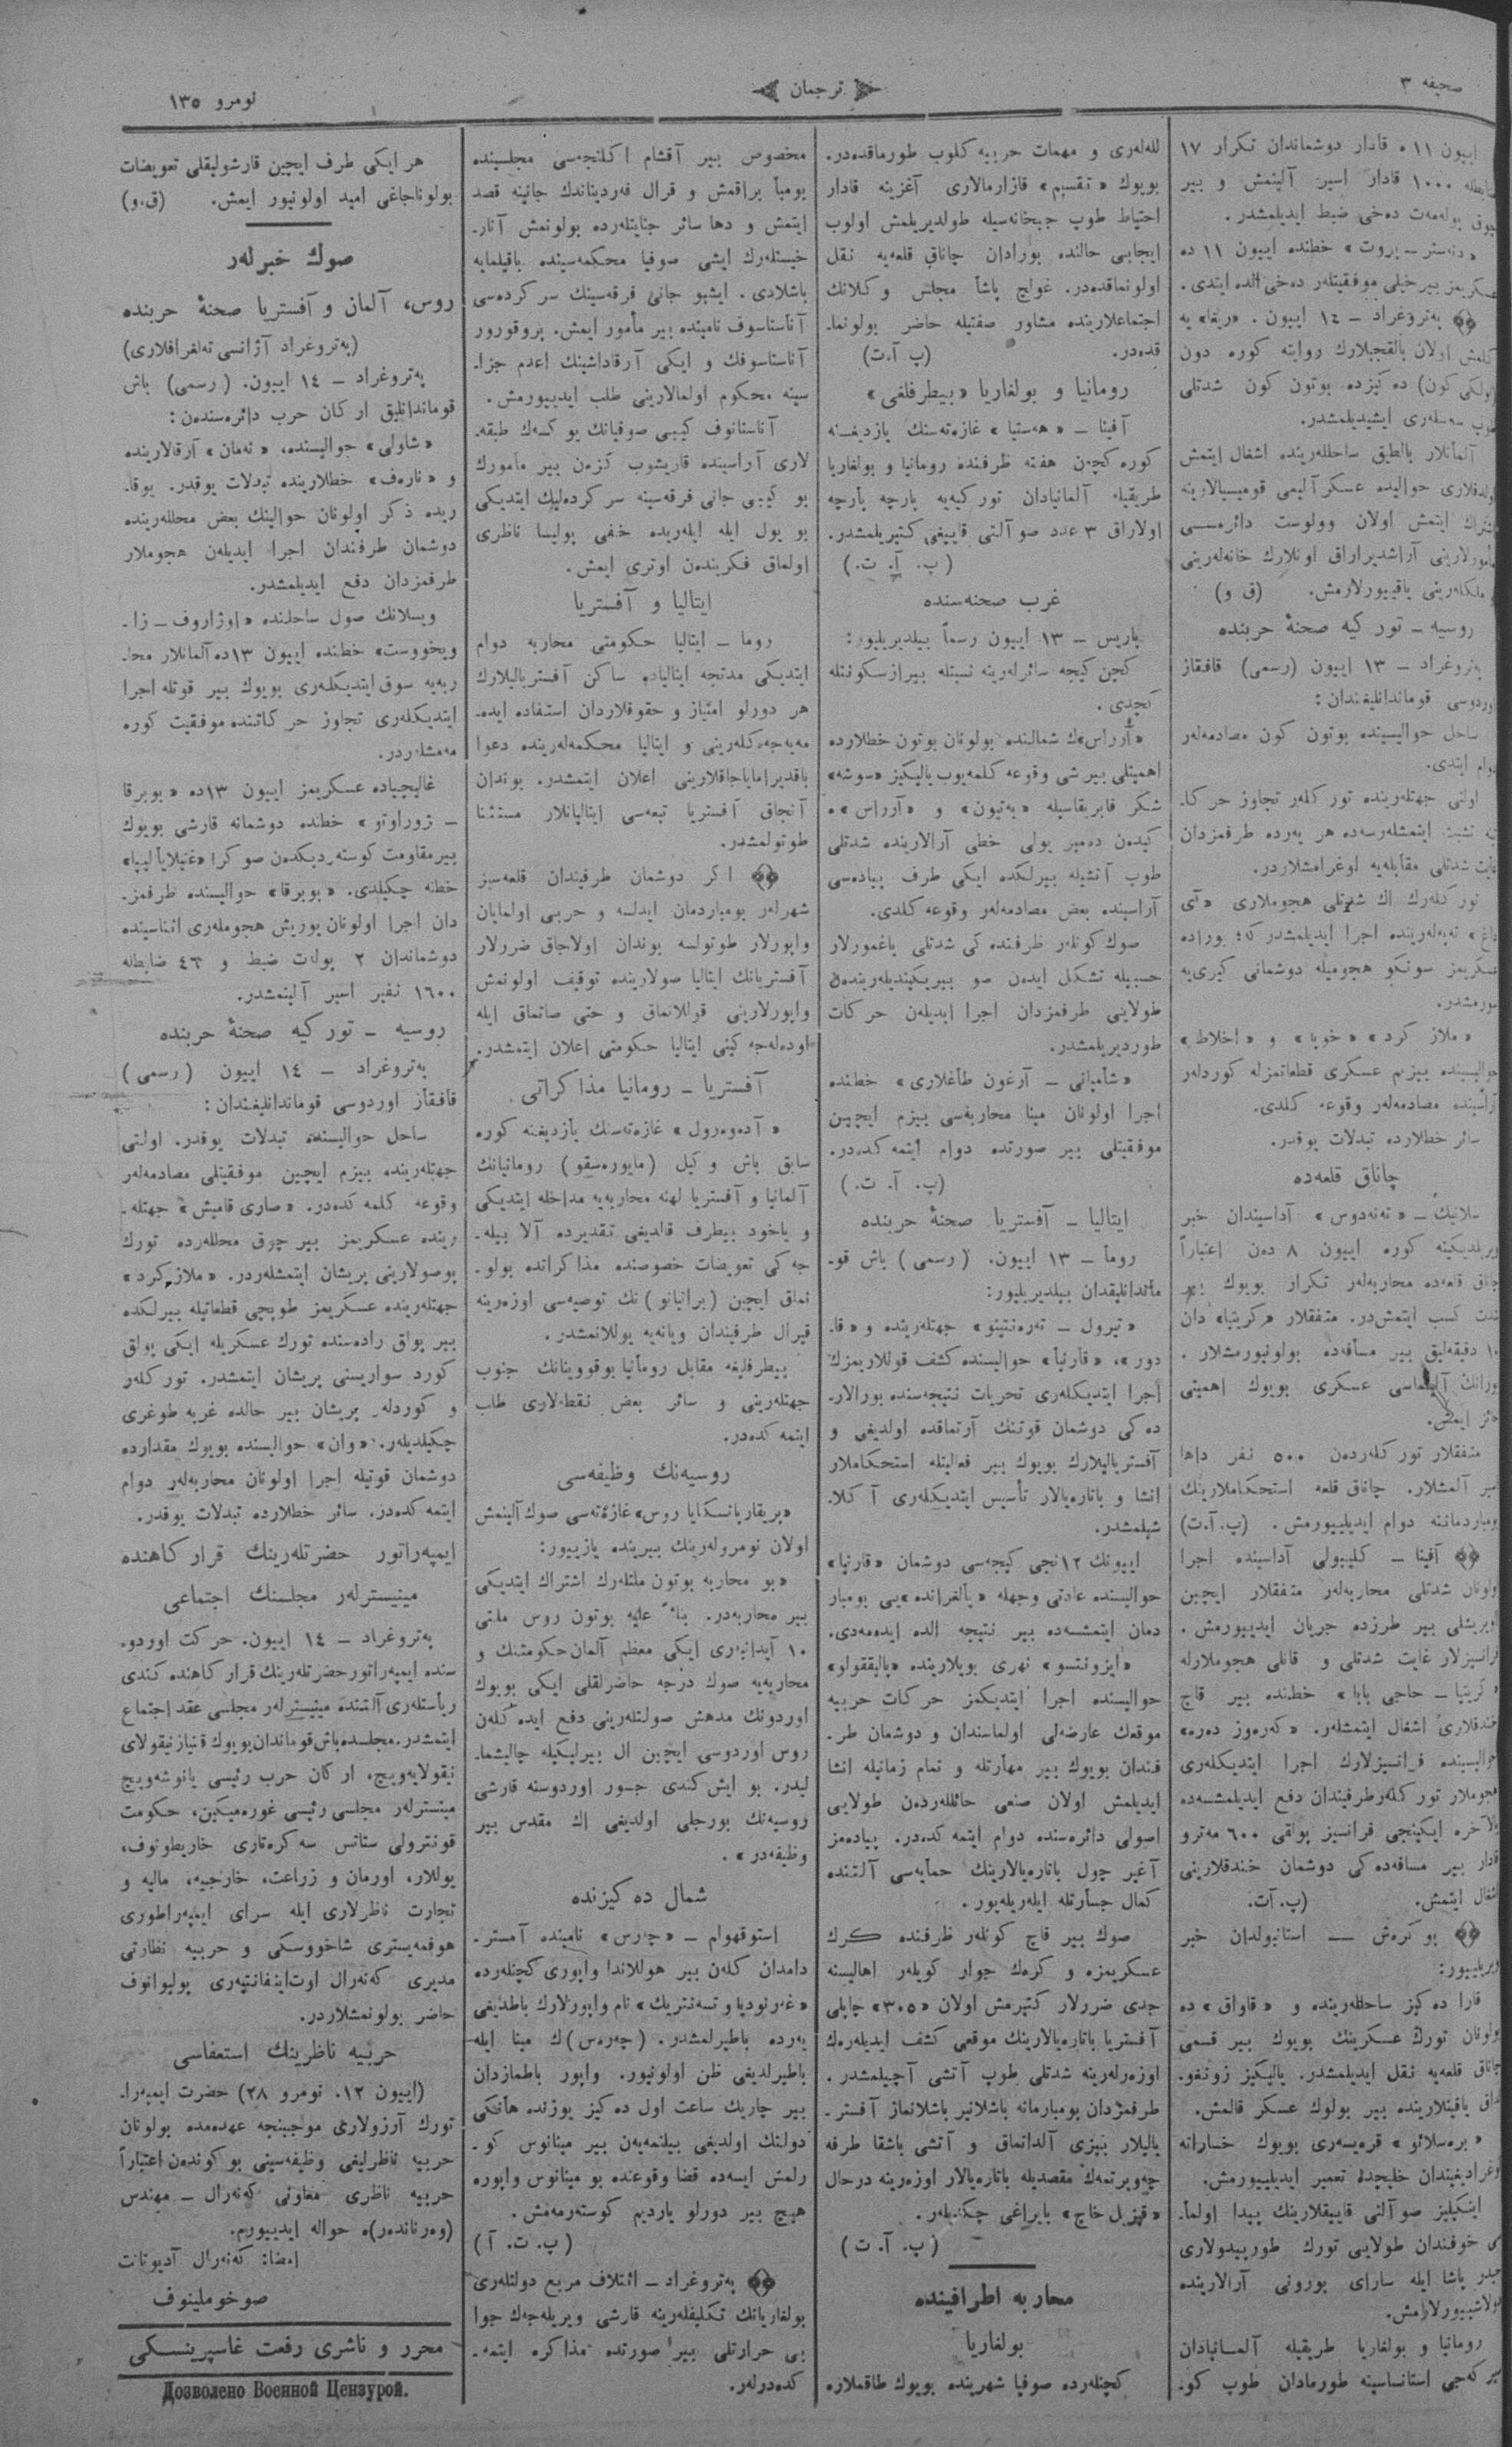 صحيفه ٣
ترجمان
نومرو ١٣٥
ايیون ١١ ه قادار دوشماندان تكرار ١٧
١٠٠٠ قادار اسیر آلینمش و بیر
چوق پوله‌مه‌ت ده‌خی ضبط ایدیلمشدر.
خطنده ایيون ١١ ده
عسكریمز بیر خیلی موفقیتلەر ده‌خی الده ایتدی.
په‌تروغراد ــ ١٤ ایيون.
كلمش اولان بالقجیلارك روایته كوره دون
ده كیزده بوتون كون شدتلی
طوپ سه‌سلەری ایشیدیلمشدر.
آلمانلار بالطیق ساحللەرینده اشغال ایتمش
اولدقلاری حوالیده عسكر آلیمی قومیسیالارینه
اشتراك ایتمش اولان وولوست دائره‌سی
مأمورلارینی آراشدیراراق اونلارك خانه‌لەرینی
و ملكلەرینی یاقییورلارمش. (ق و)
روسیه ــ توركیه صحنهٔ حربنده
په‌تروغراد ــ ١٣ ایيون (رسمی) قافقاز
اوردوسی قوماندانلیغندان:
ساحل حوالیسینده بوتون كون مصادمه‌لەر
دوام ایتدی.
اولتی جهتلەرینده توركلەر تجاوز حركا-
ته تشبث ایتمشلەرسه‌ده هر یەرده طرفمزدان
غایت شدتلی مقابله‌یه اوغرامشلاردر.
توركلەرك اك شدتلی هجوملاری «آی
داغ» تپه‌لەرینده اجرا ایدیلمشدر كه؛ بوراده
عسكریمز سونكو هجومیله دوشمانی كیری‌یه
سورمشدر.
«ملازكرد» «خویا» و «اخلاط»
حوالیسینده بیزم عسكری قطعاتمزله كوردلەر
آراسینده مصادمه‌لەر وقوعه كلدی.
سائر خطلارده تبدلات یوقدر.
چاناق قلعه‌ده
سلانیك ــ «ته‌نه‌دوس» آداسیندان خبر
ویریلدیكینه كوره ایيون ٨ ده‌ن اعتباراً
چاناق قلعه‌ده محاربه‌لەر تكرار بویوك بیر
شدت كسب ایتمشدر. متفقلار «كریتیا» دان
١٠ دقیقه‌لیق بیر مسافه‌ده بولونیورمشلار.
بورانك آلینماسی عسكری بویوك اهمیتی
حائز ایمش.
متفقلار توركلەردەن ٥٠٠ نفر داها
اسیر آلمشلار. چاناق قلعه استحكاملارینك
بومباردماننه دوام ایدیلییورمش. (پ.آ.ت)
آفینا ــ كلیبولی آداسینده اجرا
اولونان شدتلی محاربه‌لەر متفقلار ایچین
ایویریشلی بیر طرزده جریان ایدییورمش.
فرانسیزلار غایت شدتلی و قانلی هجوملارله
«كریتیا ــ حاجی بابا» خطنده بیر قاچ
خندقلاری اشغال ایتمشلەر. «كه‌ره‌وز دەرە»
حوالیسینده فرانسیزلارك اجرا ایتدیكلەری
هجوملار توركلەر طرفیندان دفع ایدیلمشسه‌ده
بالآخره ایكینجی فرانسیز پولقی ٦٠٠ مه‌ترو
قادار بیر مسافه‌ده كی دوشمان خندقلارینی
اشغال ایتمش. (پ.آ.ت)
بوكره‌ش ــ استانبولدان خبر
ویریلییور:
قارا ده كیز ساحللەرینده و «قاواق» ده
بولونان تورك عسكرینك بویوك بیر قسمی
چاناق قلعه‌یه نقل ایدیلمشدر. یالیكیز زونغو-
لداق یاقینلارینده بیر بولوك عسكر قالمش.
«بره‌سلاؤ» قره‌یسه‌ری بویوك خساراته
اوغرادیغیندان خلیجده تعمیر ایدیلییورمش.
اینكیلیز صو آلتی قاییقلارینك پیدا اولما-
سی خوفندان طولایی تورك طورپیدولاری
حیدر پاشا ایله سارای بورونی آرالارینده
دولاشییورلارمش.
رومانیا و بولغاریا طریقیله آلمانیادان
سیركه‌جی استانسیاسینه طورمادان طوپ كو-
لله‌لەری و مهمات حربیه كلوب طورماقده‌در.
بویوك «تقسیم» قازارمالاری آغزینه قادار
احتیاط طوپ جبخانه‌سیله طولدیریلمش اولوب
ایجابی حالنده بورادان چاناق قلعه‌یه نقل
اولونماقده‌در. غولچ پاشا مجلس وكلانك
اجتماعلارینده مشاور صفتیله حاضر بولونما-
قده‌در. (پ آ.ت)
رومانیا و بولغاریا «بیطرفلغی»
آفینا ــ «هه‌ستیا» غازه‌ته‌سنك یازدیغنه
كوره كچن هفته ظرفنده رومانیا و بولغاریا
طریقیله آلمانیادان توركیه‌یه پارچه پارچه
اولاراق ٣ عدد صو آلتی قاییغی كتیریلمشدر.
(پ. آ. ت.)
غرب صحنه‌سنده
پاریس ــ ١٣ ایيون رسماً بیلدیریلیور:
كچن كیجه سائرلەرینه نسبتله بیراز سكونتله
كچدی.
«آرراس»ك شمالنده بولونان بوتون خطلارده
اهمیتلی بیر شی وقوعه كلمه‌یوب یالیكیز «سوشه»
شكر فابریقاسیله «به‌تیون» و «آرراس»ه
كیدەن دەمیر یولی خطی آرالارینده شدتلی
طوپ آتشیله بیرلكده ایكی طرف پیاده‌سی
آراسینده بعض مصادمه‌لەر وقوعه كلدی.
صوك كونلەر ظرفنده كی شدتلی یاغمورلار
حسبیله تشكل ایدەن صو بیریكیندیلەریندەن
طولایی طرفمزدان اجرا ایدیلەن حركات
طوردیریلمشدر.
«شامپانی ــ آرغون طاغلاری» خطنده
اجرا اولونان مینا محاربه‌سی بیزم ایچین
موفقیتلی بیر صورتده دوام ایتمه‌كده‌در.
(پ. آ. ت.)
ایتالیا ــ آفستریا صحنهٔ حربنده
روما ــ ١٣ ایيون. (رسمی) باش قو-
ماندانلیقدان بیلدیریلیور:
«تیرول ــ ته‌ره‌نتینو» جهتلەرینده و «قا-
دور»، «قارنیا» حوالیسنده كشف قوللاریمزك
اجرا ایتدیكلەری تحریات نتیجه‌سنده بورالار-
ده كی دوشمان قوتنك آرتماقده اولدیغی و
آفستریالیلارك بویوك بیر فعالیتله استحكاملار
انشا و باتاره‌یالار تأسیس ایتدیكلەری آكلا-
شیلمشدر.
ایيونك ١٢نجی كیجه‌سی دوشمان «قارنیا»
حوالیسنده عادتی وجهله «پالغرانده»یی بومبار
دمان ایتمشسه‌ده بیر نتیجه الده ایده‌مه‌دی.
«ایزونتسو» نهری بویلارینده «پالیققولو»
حوالیسنده اجرا ایتدیكمز حركات حربیه
موقعك عارضه‌لی اولماسندان و دوشمان طر-
فندان بویوك بیر مهارتله و تمام زمانیله انشا
ایدیلمش اولان صنعی حائللەردەن طولایی
اصولی دائره‌سنده دوام ایتمه‌كده‌در. پیاده‌مز
آغیر چول باتاره‌یالارینك حمایه‌سی آلتنده
كمال جسارتله ایلەریلەیور.
صوك بیر قاچ كونلەر ظرفنده كرك
عسكریمزه و كرەك جوار كویلەر اهالیسنه
جدی ضررلار كتیرمش اولان «٣٠٥» چاپلی
آفستریا باتاره‌یالارینك موقعی كشف ایدیلەرەك
اوزەرلەرینه شدتلی طوپ آتشی آچیلمشدر.
طرفمزدان بومبارمانه باشلانیر باشلانماز آفستر-
یالیلار بیزی آلداتماق و آتشی باشقا طرفه
چه‌ویرتمه‌ك مقصدیله باتاره‌یالار اوزەرینه درحال
«قیزیل خاچ» بایراغی چكدیلەر.
(پ. آ. ت)
محاربه اطرافینده
بولغاریا
كچنلەرده صوفیا شهرینده بویوك طاقملاره
مخصوص بیر آقشام اكلنجه‌سی مجلسینده
بومبا براقمش و قرال فه‌ردیناندك جانینه قصد
ایتمش و دها سائر جنایتلەرده بولونمش آنار-
خیستلەرك ایشی صوفیا محكمه‌سینده باقیلمایه
باشلادی. ایشبو جانی فرقه‌سینك سركرده‌سی
آناستاسوف نامینده بیر مأمور ایمش. پروقورور
آناستاسوفك و ایكی آرقاداشینك اعدام جزا-
سینه محكوم اولمالارینی طلب ایدییورمش.
آناستاسوف كیبی صوفیانك یوكسەك طبقه-
لاری آراسینده قاریشوب كزەن بیر مأمورك
بو كیبی جانی فرقه‌سینه سركرده‌لیك ایتدیكی
بو یول ایله ایلەریده خفی پولیسا ناظری
اولماق فكریندەن اوتری ایمش.
ایتالیا و آفستریا
روما ــ ایتالیا حكومتی محاربه دوام
ایتدیكی مدتجه ایتالیاده ساكن آفستریالیلارك
هر دورلو امتیاز و حقوقلاردان استفاده ایده-
مه‌یه‌جه‌كلەرینی و ایتالیا محكمه‌لەرینده دعوا
باقدیرامایاجاقلارینی اعلان ایتمشدر. بوندان
آنجاق آفستریا تبعه‌سی ایتالیانلار مستثنا
طوتولمشدر.
اكر دوشمان طرفیندان قلعه‌سیز
شهرلەر بومباردمان ایدلسه و حربی اولمایان
واپورلار طوتولسه بوندان اولاجاق ضررلار
آفستریانك ایتالیا صولارینده توقیف اولونمش
واپورلارینی قوللانماق و حتی صاتماق ایله
اوده‌له‌جه‌كینی ایتالیا حكومتی اعلان ایتمشدر.
آفستریا ــ رومانیا مذاكراتی
«آده‌وه‌رول» غازه‌ته‌سنك یازدیغنه كوره
سابق باش وكیل (مایوره‌سقو) رومانیانك
آلمانیا و آفستریا لهنه محاربه‌یه مداخله ایتدیكی
و یاخود بیطرف قالدیغی تقدیرده آلا بیله-
جه‌كی تعویضات خصوصنده مذاكراتده بولو-
نماق ایچین (براتیانو)نك توصیه‌سی اوزەرینه
قیرال طرفیندان ویانه‌یه یوللانمشدر.
بیطرفلیغه مقابل رومانیا بوقووینانك جنوب
جهتلەرینی و سائر بعض نقطه‌لاری طلب
ایتمه‌كده‌در.
روسیه‌نك وظیفه‌سی
«بریقاریانسكایا روس» غازه‌ته‌سی صوك آلینمش
اولان نومرولەرینك بیرینده یازییور:
«بو محاربه بوتون ملتلەرك اشتراك ایتدیكی
بیر محاربه‌در. بناءً علیه بوتون روس ملتی
١٠ آیدانبەری ایكی معظم آلمان حكومتنك و
محاربه‌یه صوك درجه حاضرلقلی ایكی بویوك
اوردونك مدهش صولتلەرینی دفع ایده كلەن
روس اوردوسی ایچین ال بیرلیكیله چالیشما-
لیدر. بو ایش كندی جسور اوردوسنه قارشی
روسیه‌نك بورجلی اولدیغی اك مقدس بیر
وظیفه‌در».
شمال ده كیزنده
استوقهولم ــ «چه‌رس» نامینده آمستر-
دامدان كلەن بیر هوللاندا واپوری كچنلەرده
«غه‌رنودیا و تسه‌نتریك» نام واپورلارك باطدیغی
یەرده باطیرلمشدر. (چه‌ره‌س)ك مینا ایله
باطیرلدیغی ظن اولونیور. واپور باطمازدان
بیر چاریك ساعت اول ده كیز یوزنده هانكی
دولتك اولدیغی بیلنمه‌یەن بیر مینانوس كو-
رلمش ایسه‌ده قضا وقوعنده بو مینانوس واپوره
هیچ بیر دورلو یاردیم كوسته‌رمه‌مش.
(پ. ت. آ)
په‌تروغراد ــ ائتلاف مربع دولتلەری
بولغاریانك تكلیفلەرینه قارشی ویریله‌جه‌ك جوا
بی حرارتلی بیر صورتده مذاكره ایتمه-
كده‌درلەر.
هر ایكی طرف ایچین قارشولیقلی تعویضات
بولوناجاغی امید اولونیور ایمش. (ق.و)
صوك خبرلەر
روس، آلمان و آفستریا صحنهٔ حربنده
(په‌تروغراد آژانسی ته‌لغرافلاری)
په‌تروغراد ــ ١٤ ایيون. (رسمی) باش
قوماندانلیق اركان حرب دائره‌سندەن:
«شاولی» حوالیسنده، «نه‌مان» آرقالارینده
و «ناره‌ف» خطلارینده تبدلات یوقدر. یوقا-
ریده ذكر اولونان حوالینك بعض محللەرینده
دوشمان طرفندان اجرا ایدیلەن هجوملار
طرفمزدان دفع ایدیلمشدر.
ویسلانك صول ساحلنده «اوژاروف ــ زا-
ویخووست» خطنده ایيون ١٣ده آلمانلار محا-
ربه‌یه سوق ایتدیكلەری بویوك بیر قوتله اجرا
ایتدیكلەری تجاوز حركاتنده موفقیت كوره
مه‌مشلەردر.
غالیچیاده عسكریمز ایيون ١٣ده «بوبرقا
ــ ژوراوتو» خطنده دوشمانه قارشی بویوك
بیر مقاومت كوسته‌ردیكدەن صوكرا «غنیلایا لیپا»
خطنه چكیلدی. «بوبرقا» حوالیسنده طرفمز-
دان اجرا اولونان یوریش هجوملەری اثناسینده
دوشماندان ٢ پوله‌ت ضبط و ٤٦ ضابطله
١٦٠٠ نفر اسیر آلینمشدر.
روسیه ــ توركیه صحنهٔ حربنده
په‌تروغراد ــ ١٤ ایيون (رسمی)
قافقاز اوردوسی قوماندانلیغندان:
ساحل حوالیسنده تبدلات یوقدر. اولتی
جهتلەرینده بیزم ایچین موفقیتلی مصادمه‌لەر
وقوعه كلمه‌كده‌در. «صاری قامیش» جهتله-
رینده عسكریمز بیر چوق محللەرده تورك
پوصولارینی پریشان ایتمشلەردر. «ملازكرد»
جهتلەرینده عسكریمز طوپجی قطعاتیله بیرلكده
بیر پولق راده‌سنده تورك عسكریله ایكی پولق
كورد سواریسنی پریشان ایتمشدر. توركلەر
و كوردلەر پریشان بیر حالده غربه طوغری
چكیلدیلەر. «وان» حوالیسنده بویوك مقدارده
دوشمان قوتیله اجرا اولونان محاربه‌لەر دوام
ایتمه‌كده‌در. سائر خطلارده تبدلات یوقدر.
ایمپه‌راتور حضرتلەرینك قراركاهنده
مینیسترلەر مجلسنك اجتماعی
په‌تروغراد ــ ١٤ ایيون. حركت اوردو-
سنده ایمپه‌راتور حضرتلەرینك قراركاهنده كندی
ریاستلەری آلتنده مینیسترلەر مجلسی عقد اجتماع
ایتمشدر. مجلسده باش قوماندان بویوك قنیاز نیقولای
نیقولایه‌ویچ، اركان حرب رئیسی یانوشه‌ویچ
مینسترلەر مجلسی رئیسی غوره‌میكین، حكومت
قونترولی ستاتس سه‌كره‌تاری خاریطونوف،
یوللار، اورمان و زراعت، خارجیه، مالیه و
تجارت ناظرلاری ایله سرای ایمپه‌راطوری
هوفمه‌یستری شاخووسكی و حربیه نظارتی
مدیری كه‌نه‌رال اوت اینفانتیه‌ری پولیوانوف
حاضر بولونمشلاردر.
حربیه ناظرینك استعفاسی
(ایيون ١٢، نومرو ٢٨) حضرت ایمپه‌را-
تورك آرزولاری موجبینجه عهده‌مده بولونان
حربیه ناظرلیغی وظیفه‌سینی بو كوندەن اعتباراً
حربیه ناظری معاونی كه‌نه‌رال ــ مهندس
(وه‌رناندەر)ه حواله ایدییورم.
امضا: كه‌نه‌رال آدیوتانت
صوخوملینوف
محرر و ناشری رفعت غاسپرینسكی
Дозволено Военной Цензурой.